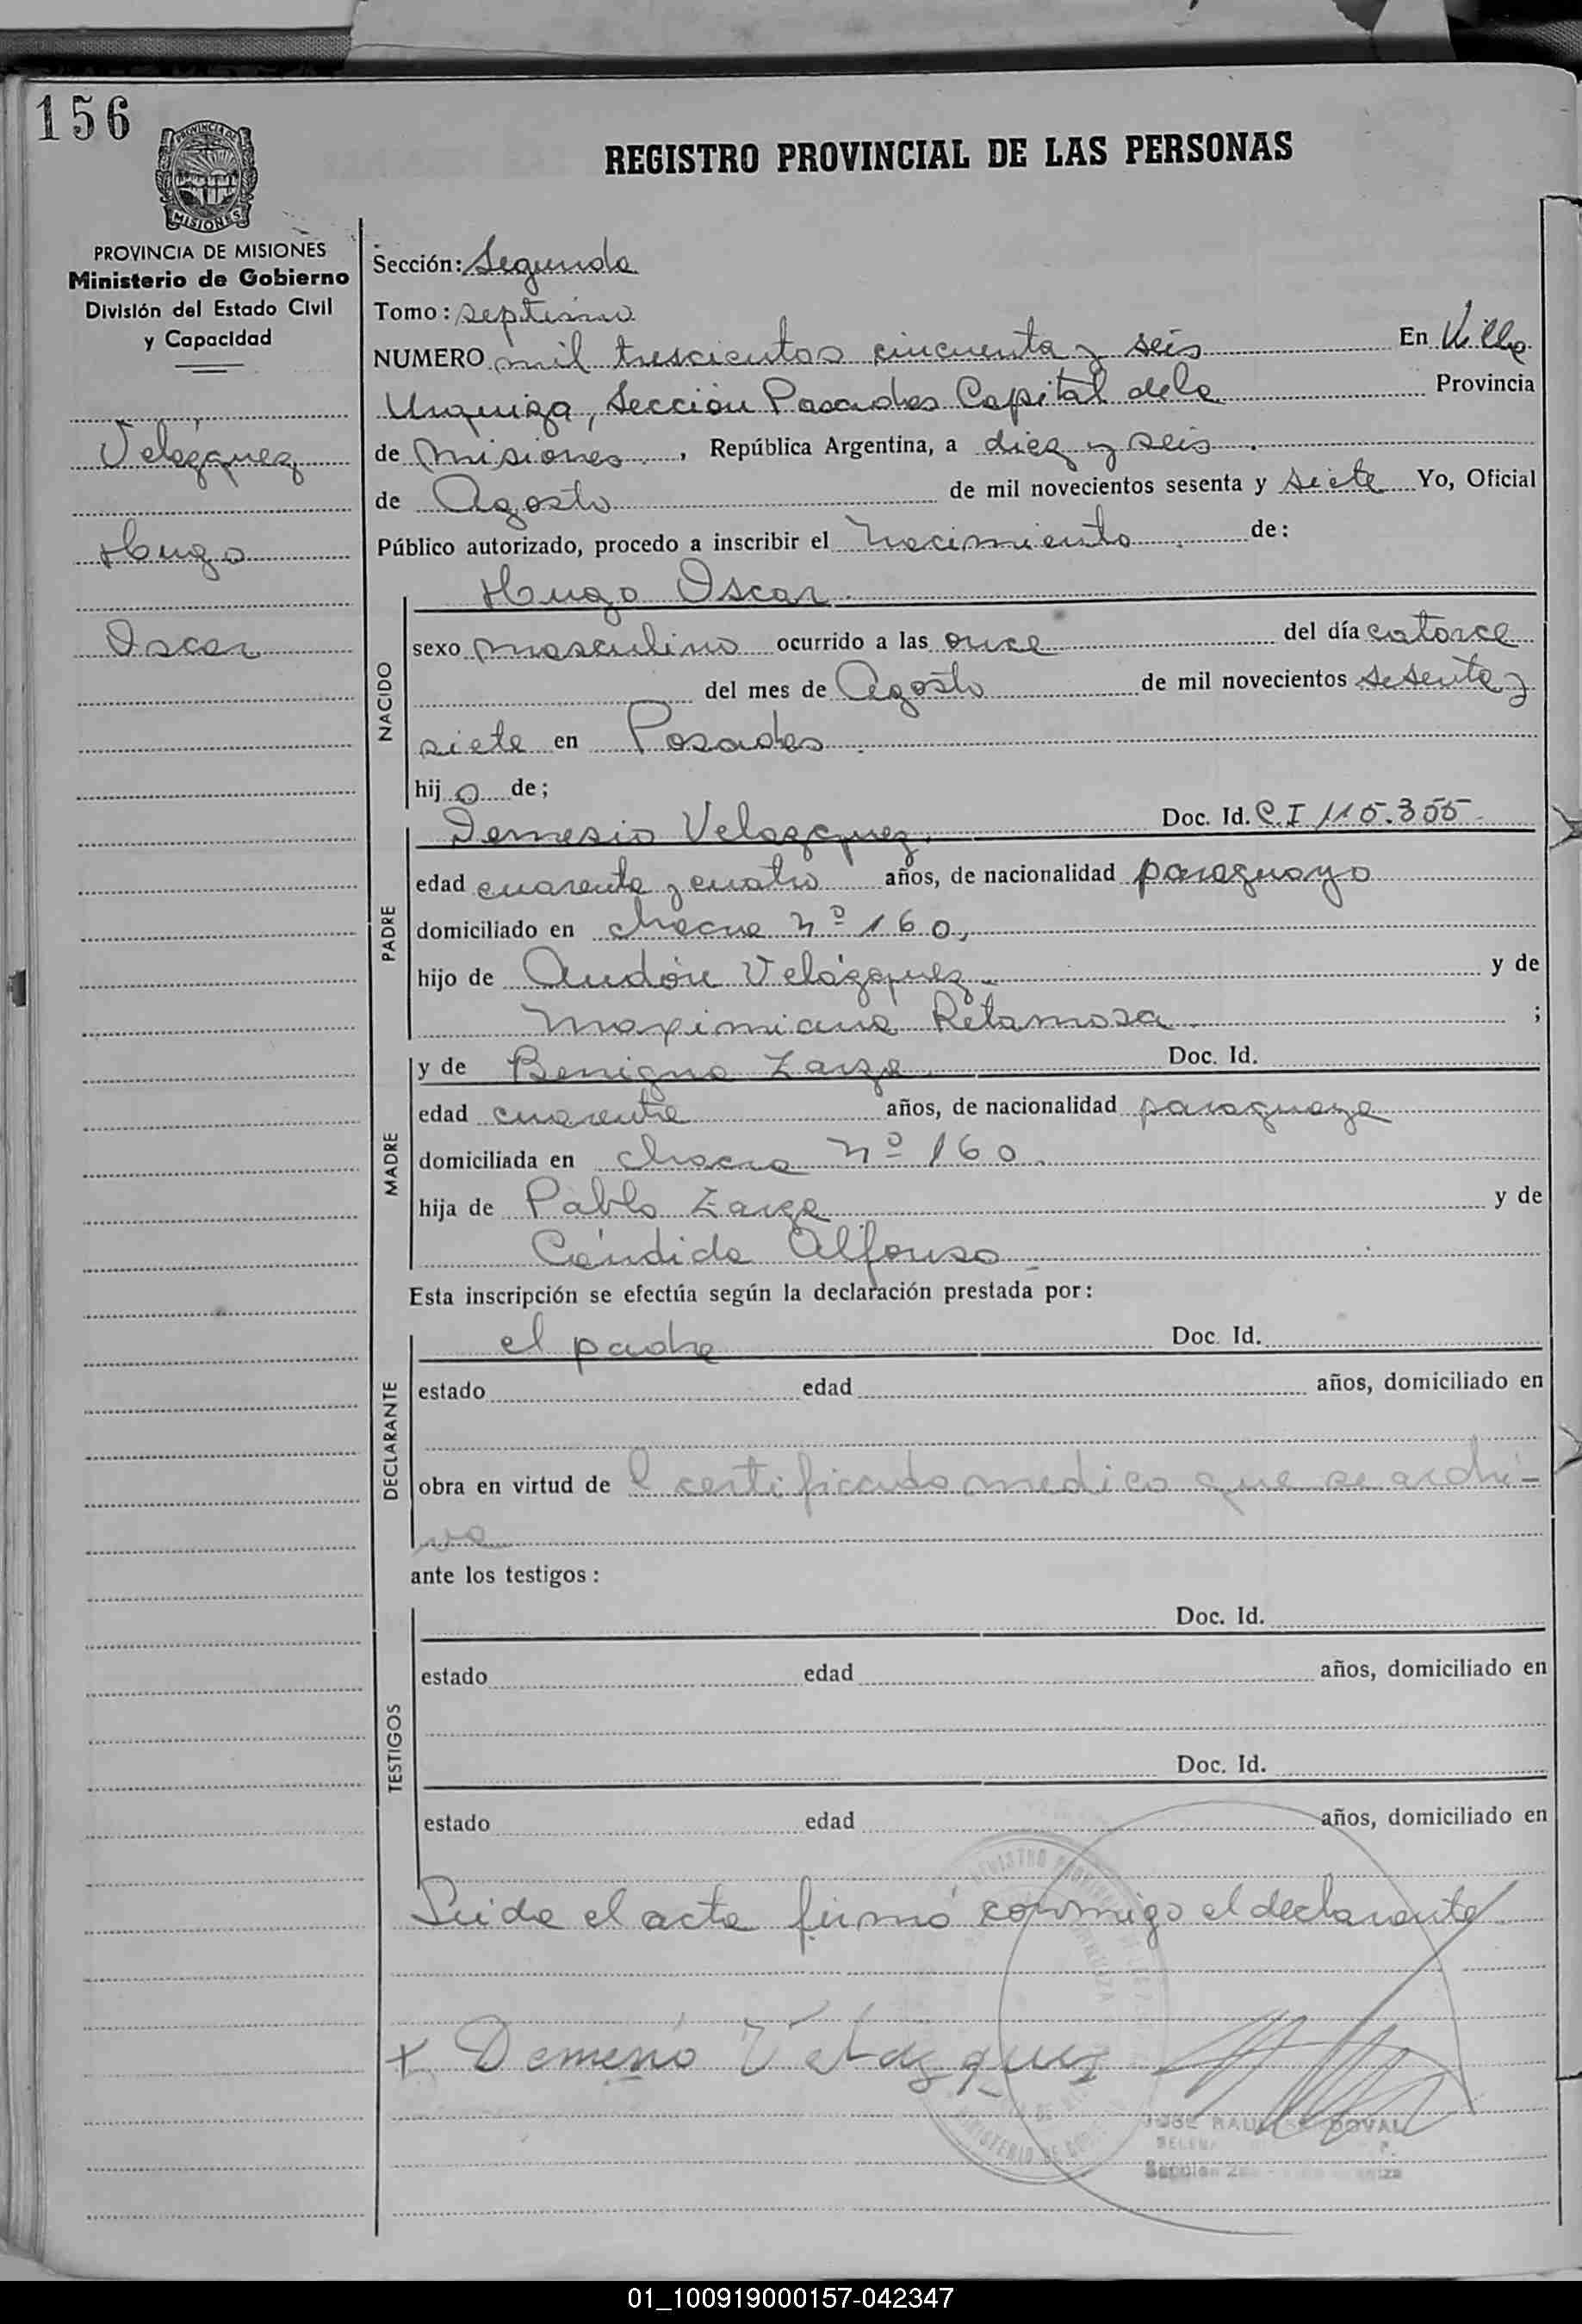 156
PROVINCIA DE
MISIONES
REGISTRO PROVINCIAL DE LAS PERSONAS
PROVINCIA DE MISIONES
Ministerio de Gobierno
División del Estado Civil
y Capacidad
Velázquez
Hugo
Oscar
Sección: Segunda
Tomo: septimo
NUMERO mil trescientos cincuenta y seis En Villa
Urquiza, Sección Posadas Capital de la Provincia
de Misiones, República Argentina, a diez y seis
de Agosto de mil novecientos sesenta y siete Yo, Oficial
Público autorizado, procedo a inscribir el Nacimiento de:
NACIDO
Hugo Oscar
sexo masculino ocurrido a las once del día catorce
del mes de Agosto de mil novecientos sesenta y
siete en Posadas
hijo de;
PADRE
Demesio Velazquez, Doc. Id. C.I 115.355
edad cuarenta y cuatro años, de nacionalidad paraguayo
domiciliado en chacra Nº 160,
hijo de Audón Velázquez y de
Maximiana Retamosa ;
MADRE
y de Benigna Zarza Doc. Id.
edad cuarenta años, de nacionalidad paraguaya
domiciliada en chacra Nº 160
hija de Pablo Zarza y de
Cándida Alfonso
Esta inscripción se efectúa según la declaración prestada por:
DECLARANTE
el padre Doc. Id.
estado edad años, domiciliado en
obra en virtud de l certificado medico que se archi-
va
ante los testigos:
TESTIGOS
Doc. Id.
estado edad años, domiciliado en
Doc. Id.
estado edad años, domiciliado en
Leida el acta firmó conmigo el declarante
x Demesio Velazquez
JOSE RAUL
01_100919000157-042347